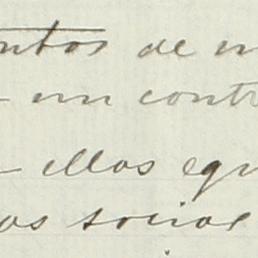 ntos de
un contr
ellos equ
os social